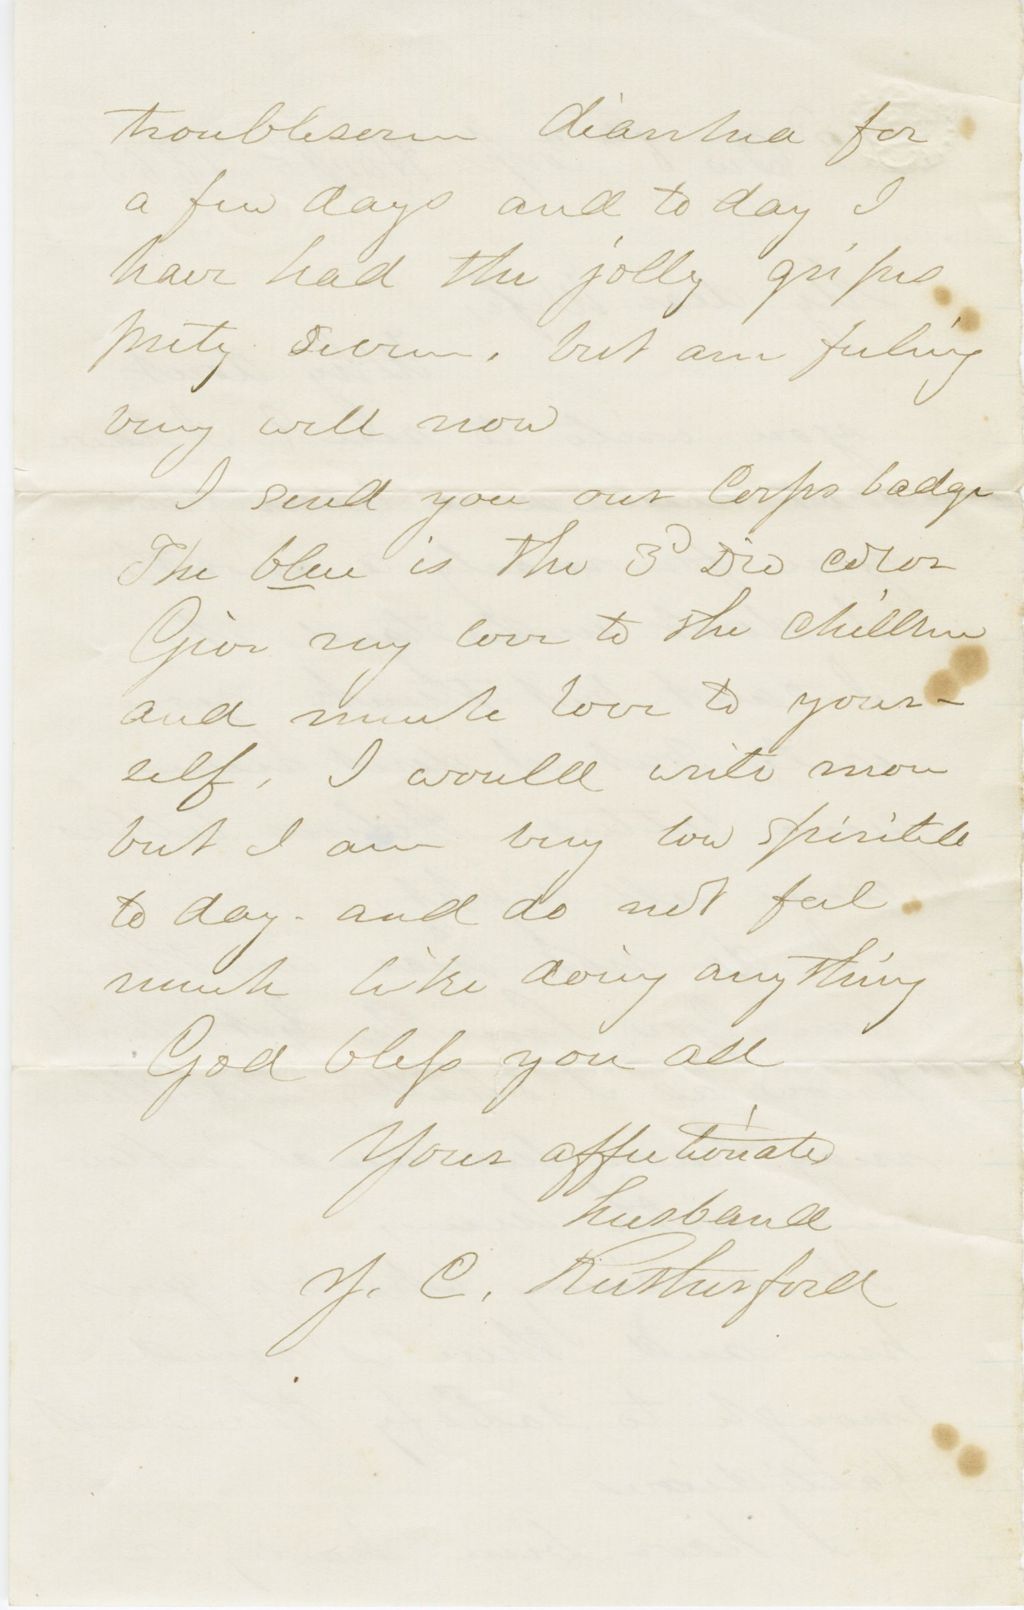 troublesom diarrhea for
a few days and to day I
have had the jolly gripes
prety severe, but am feeling
very well now
I send you our Corps badge
The blue is the 3d Div color
Give my love to the chilldren
and much love to your-
self, I would write more
but I am very low spirited
to day - and do not feel
much like doing anything
God bless you all
Your affectionate
husband
J. C. Rutherford